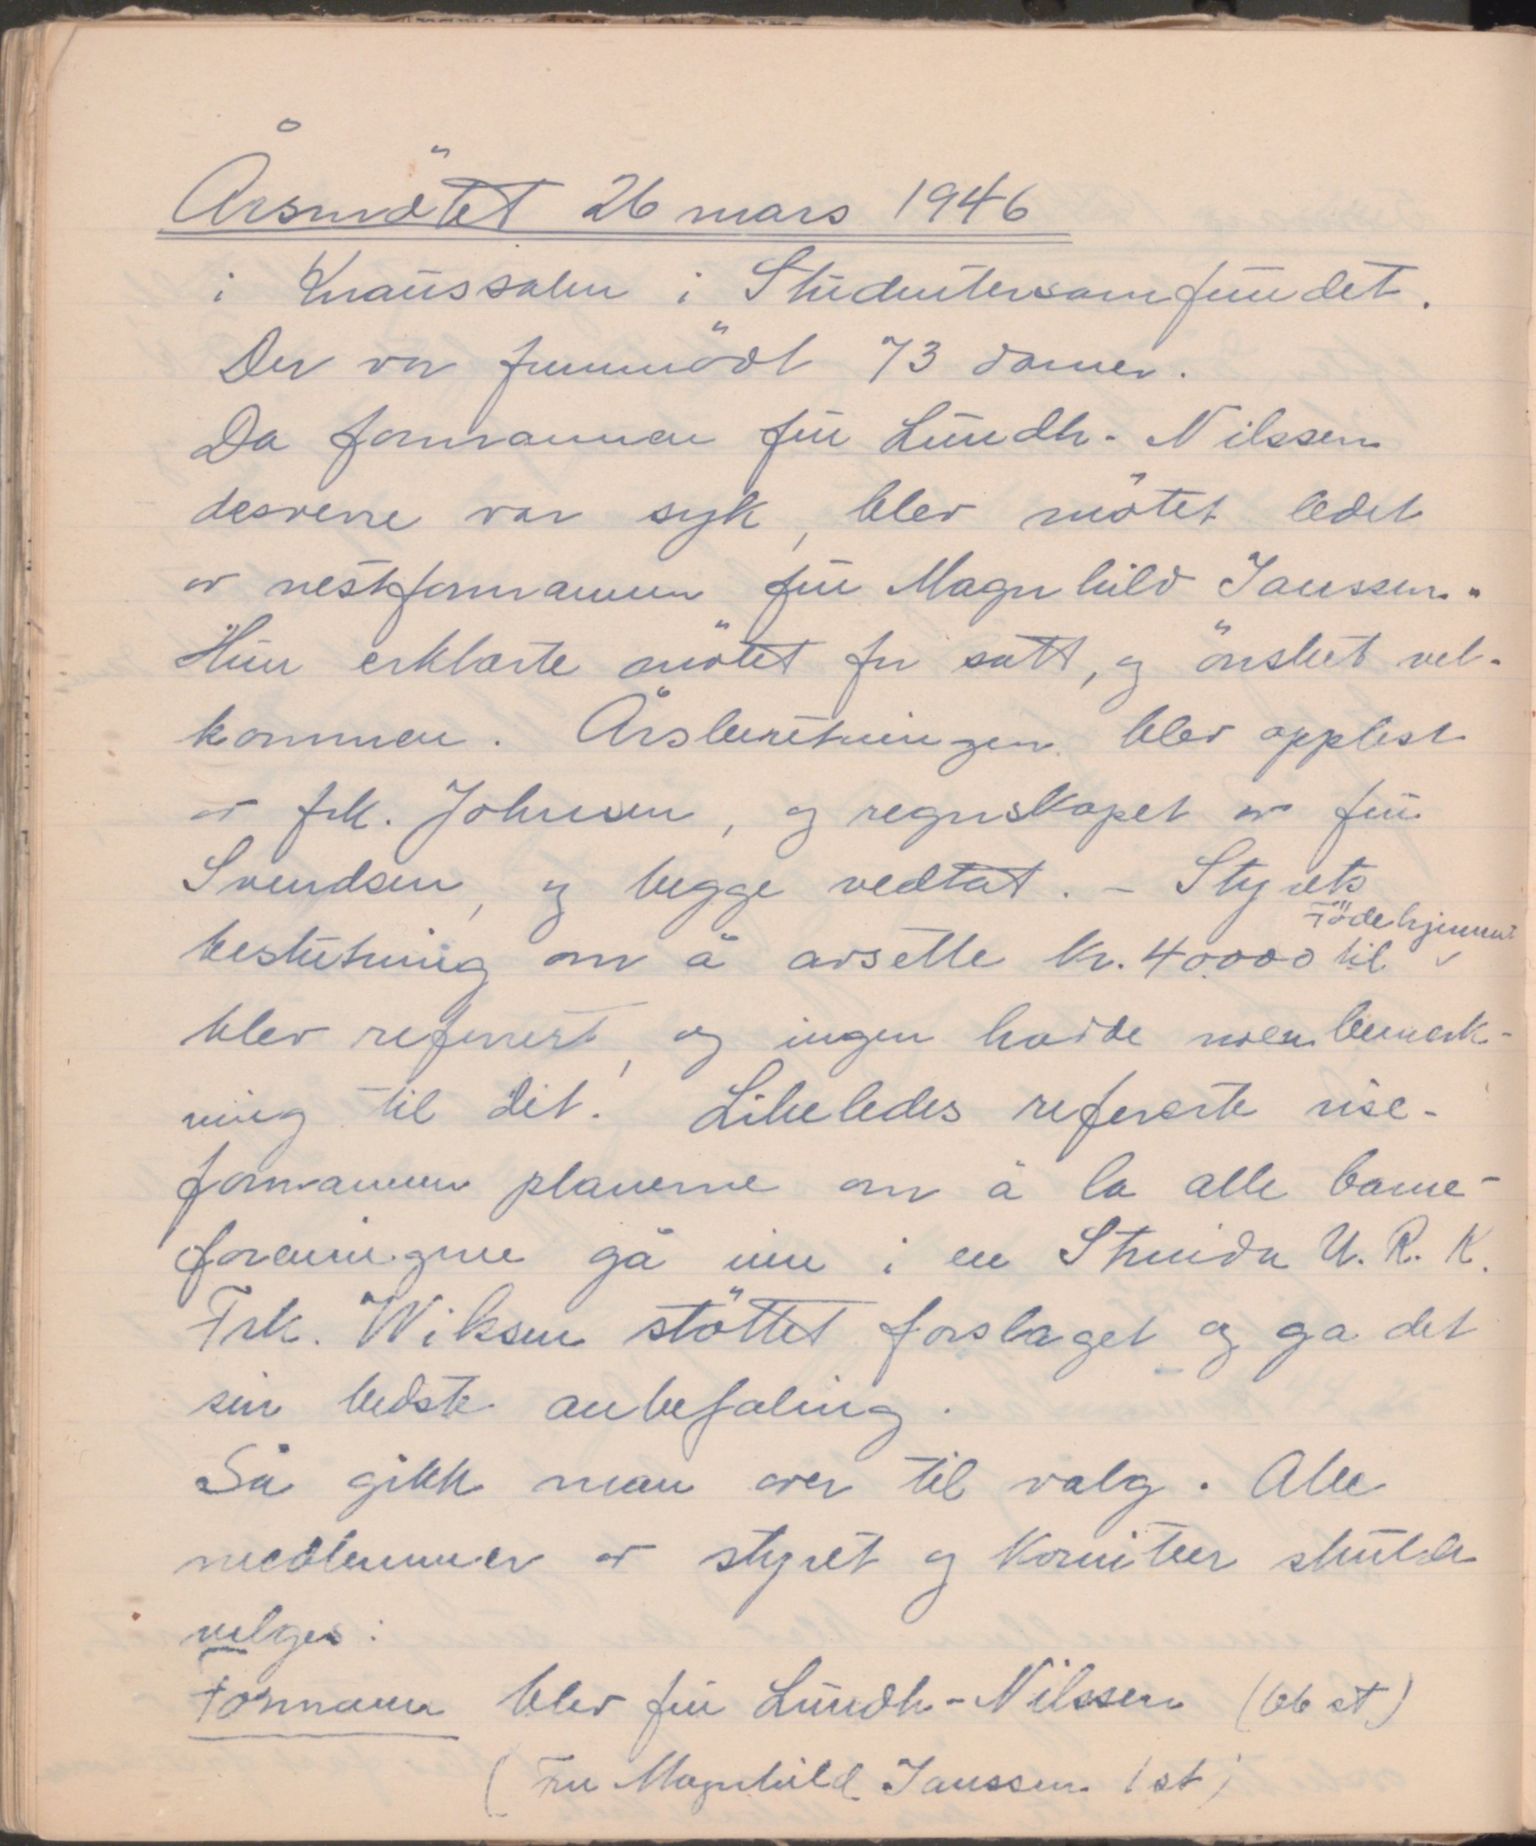 Årsmötet 26 mars 1946
i Knaussalen i Studentersamfundet.
Der var fremmödt 73 damer.
Da formannen fru Lundh-Nilssen
desverre var syk, blev mötet ledet
av nestformannen fru Magnhild Janssen.
Hun erklærte mötet for satt, og önsket vel-
kommen. Årsberetningen blev opplest
av frk. Johnsen, og regnskapet av fru
Svendsen, og begge vedtat. - Styrets
beslutning om å avsette kr. 40.000 til Födehjemmet
blev referert, og ingen hadde noen bemerk-
ning til det. Likeledes refererte vise-
formannen planerne om å la alle barne-
foreningene gå inn i en Strinda U.R.K.
Frk. Wiksen stöttet forslaget og ga det
sin bedste anbefaling.
Så gikk man over til valg. Alle
medlemmer av styret og komiteer skulde
velges:
Formann blev fru Lundh-Nilssen (66 st)
(Fru Magnhild Janssen 1 st)